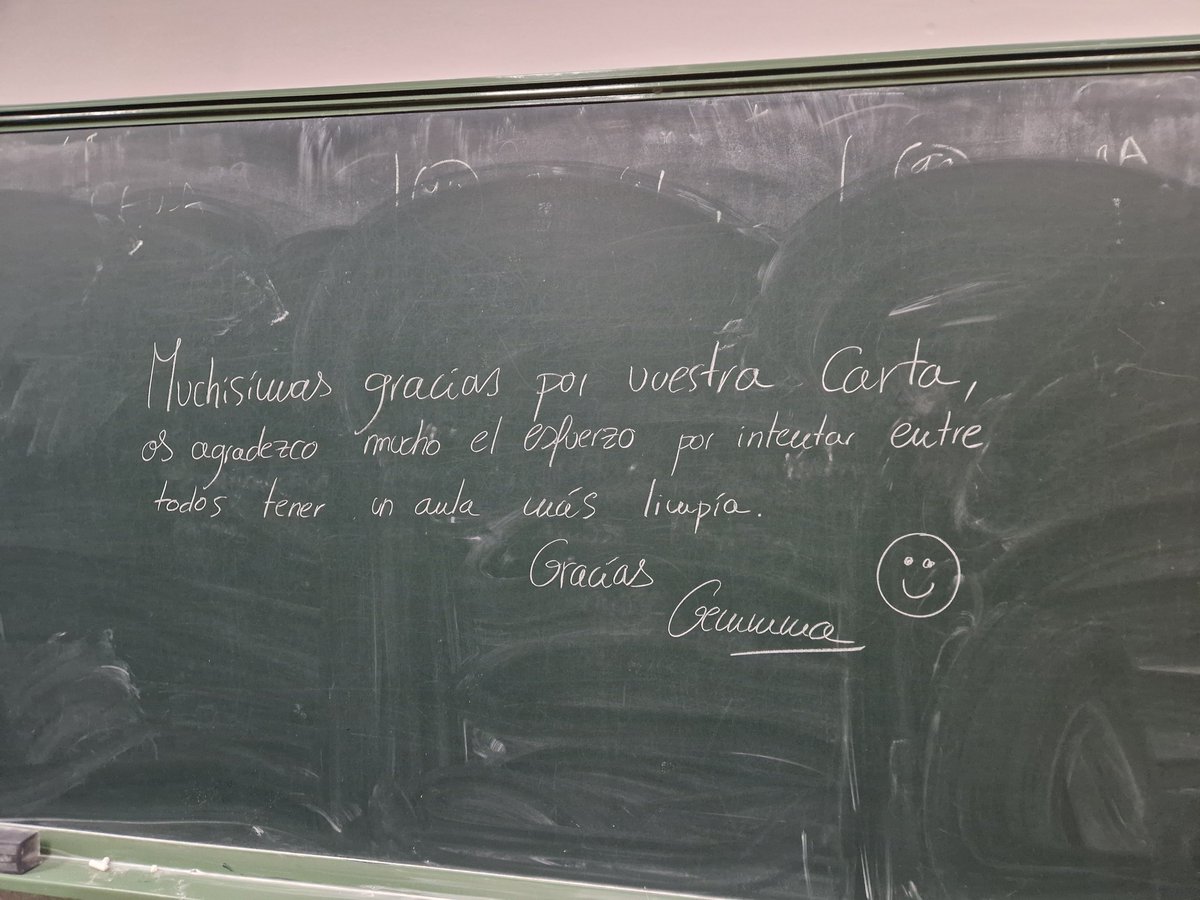 Muchisimas gracias por vuestra Carta,
os agradezco mucho el esfuerzo por intentar entre
todos tener un aula más limpia.
Gracias
Gemma